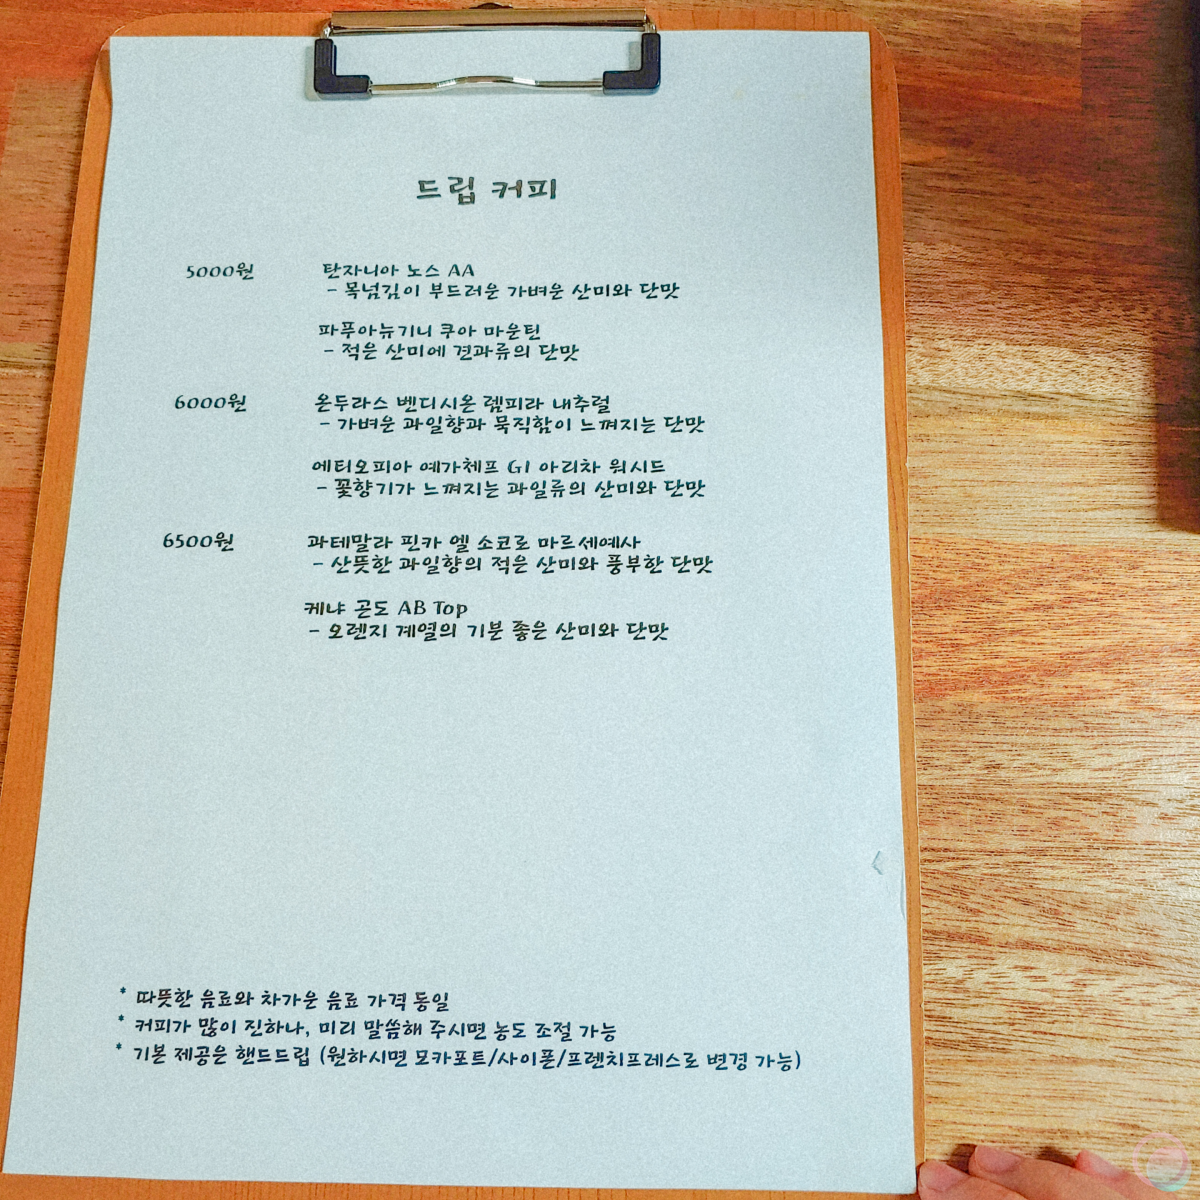 드립 커피
5000원 탄자니아 노스 AA
- 목넘김이 부드러운 가벼운 산미와 단맛
파푸아뉴기니 쿠아 마운틴
- 적은 산미에 견과류의 단맛
6000원 온두라스 벤디시온 렘피라 내추럴
- 가벼운 과일향과 묵직함이 느껴지는 단맛
에티오피아 예가체프 G1 아리차 워시드
- 꽃향기가 느껴지는 과일류의 산미와 단맛
6500원 과테말라 핀카 엘 소코로 마르세예사
- 산뜻한 과일향의 적은 산미와 풍부한 단맛
케냐 곤도 AB Top
- 오렌지 계열의 기분 좋은 산미와 단맛
* 따뜻한 음료와 차가운 음료 가격 동일
* 커피가 많이 진하나, 미리 말씀해 주시면 농도 조절 가능
* 기본 제공은 핸드드립 (원하시면 모카포트/사이폰/프렌치프레스로 변경 가능)